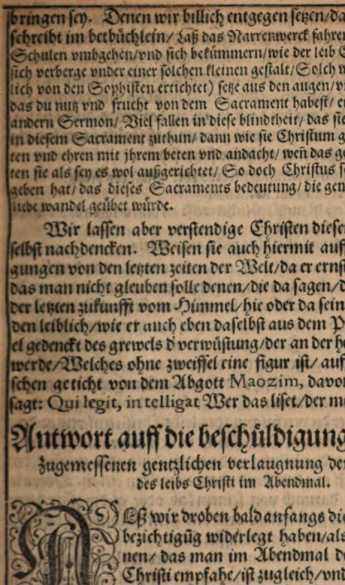 bringen sey. Denen wir billich entgegen setzen/da
schreibt im betbüchlein/ Laß das Narrenwerck fahren
Schulen vmbgehen/vnd sich bekümmern/wie der leib C
sich verberge vnder einer solchen kleinen gestalt/ Solch w
lich von den Sophisten ertichtet) setze aus den augen/v
das du nutz vnd frucht von dem Sacrament habest/ e
andern Sermon/ Viel fallen in diese blindtheit/ das sie
in diesem Sacrament zuthun/ dann wie sie Christum g
ten vnd ehren mit jhrem beten vnd andacht/ weñ das ge
ten sie als sey es wol außgerichtet/ So doch Christus s
geben hat/ das dieses Sacraments bedeutung/ die gem
liebe wandel geübet würde.
Wir lassen aber verstendige Christen diese
selbst nachdencken. Weisen sie auch hiermit auff
gungen von den letzten zeiten der Welt/da er ernst
das man nicht gleuben solle denen/die da sagen/d
der letzten zukunfft vom Himmel/hie oder da sein
den leiblich/wie er auch eben daselbst aus dem P
el gedenckt des grewels d verwüstung/der an der he
werde/Welches ohne zweiffel eine figur ist/ auff
schen geticht von dem Abgott Maozim, davon
sagt: Qui legit, intelligat Wer das liset/der m
Antwort auff die beschüldigung
zugemessenen gentzlichen verlaugnung der
des leibs Christi im Abendmal.
Eß wir droben bald anfangs die
bezichtigūg widerlegt haben/als
nen/ das man im Abendmal de
Christi empfahe/ist zugleich/vnd